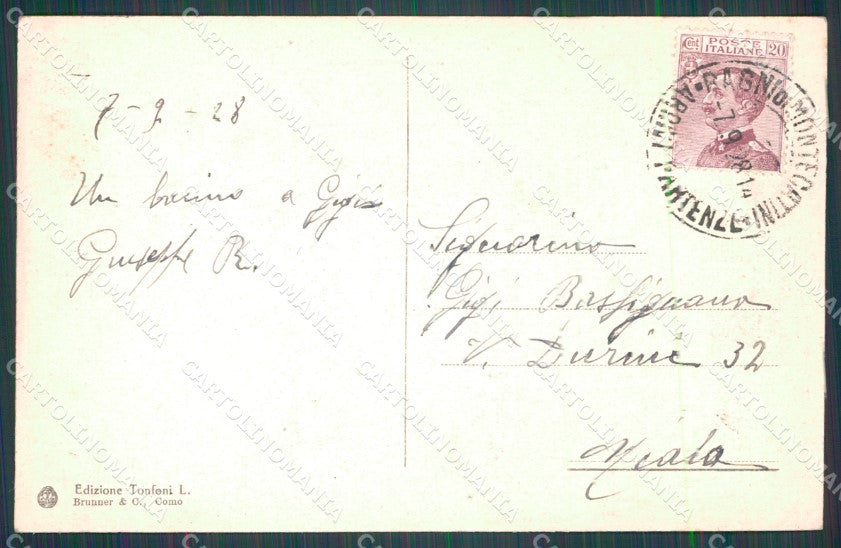 7-9-28
Un bacino a Gigi
Giuseppe R.
Edizione Tonfoni L.
Brunner & C., Como
Cent. POSTE ITALIANE 20
BAGNI DI MONTECATINI
ARRIVI PARTENZE
-7.9.28.14
Signorino
Gigi Bassignano
V. Durini 32
CARTOLINOMANIA